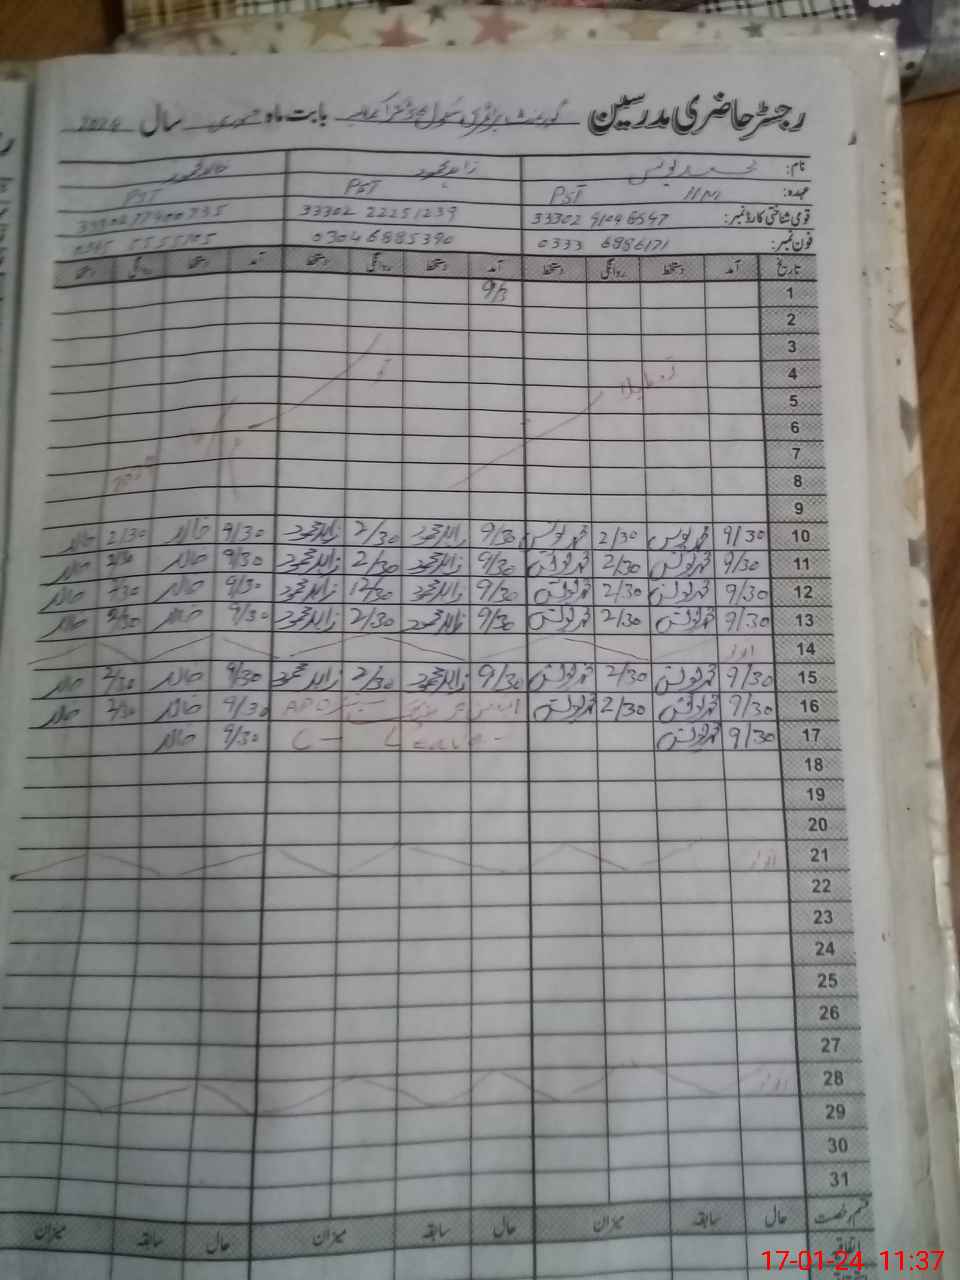 رجسٹر حاضری مدرسین گورنمنٹ پرائمری سکول بابت ماہ جنوری سال 2024
نام: محمد یونس زاہد محمود خالد محمود
عہدہ: PST HM PST PST
قومی شناختی کارڈ نمبر: 33302 22251239
فون نمبر: 0333 6886171 0304 6885390
تاریخ آمد دستخط روانگی دستخط آمد دستخط روانگی دستخط آمد دستخط روانگی دستخط
1
2
3
4
5
6
7
8
9
10 9/30 محمد یونس 2/30 محمد یونس 9/30 زاہد محمود 2/30 زاہد محمود 9/30 خالد 2/30 خالد
11 9/30 محمد یونس 2/30 محمد یونس 9/30 زاہد محمود 2/30 زاہد محمود 9/30 خالد 2/30 خالد
12 9/30 محمد یونس 2/30 محمد یونس 9/30 زاہد محمود 12/30 زاہد محمود 9/30 خالد خالد
13 9/30 محمد یونس 2/30 محمد یونس 9/30 زاہد محمود 2/30 زاہد محمود 9/30 خالد 2/30 خالد
14 اتوار
15 9/30 محمد یونس 2/30 محمد یونس 9/30 زاہد محمود 2/30 زاہد محمود 9/30 خالد 2/30 خالد
16 9/30 محمد یونس 2/30 محمد یونس 9/30 خالد 2/30 خالد
17 9/30 محمد یونس C - Leave - 9/30 خالد
18
19
20
21 اتوار
22
23
24
25
26
27
28 اتوار
29
30
31
قسم رخصت حال سابقہ میزان حال سابقہ میزان حال سابقہ میزان
اتفاقیہ
17-01-24 11:37